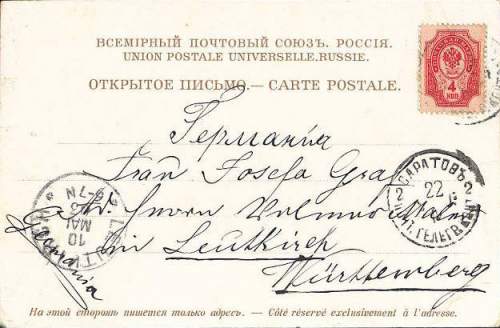 ВСЕМІРНЫЙ ПОЧТОВЫЙ СОЮЗЪ. РОССІЯ.
UNION POSTALE UNIVERSELLE. RUSSIE.
ОТКРЫТОЕ ПИСЬМО.— CARTE POSTALE.
4
КОП
Германія
Frau Josefa Graf
bei Leutkirch
Württemberg
Germania
САРАТОВЪ
2 22 2
10
MAI
6-7N
На этой сторонѣ пишется только адресъ. — Côté réservé exclusivement à l'adresse.